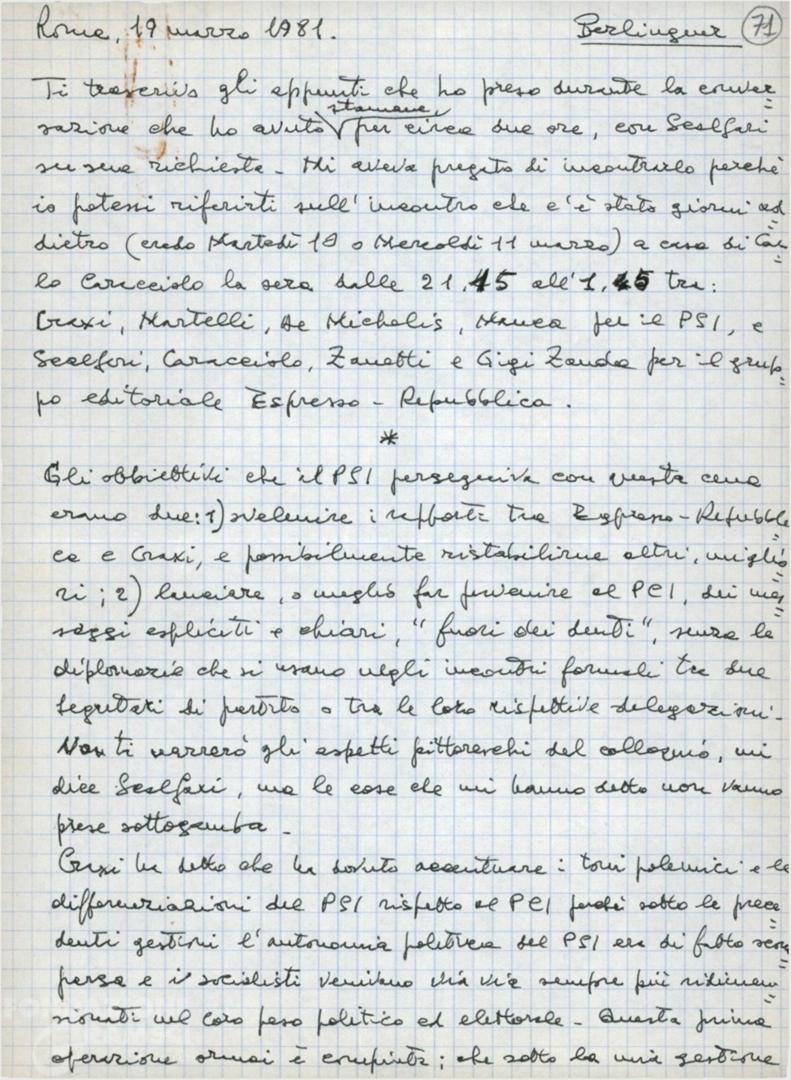 Roma, 19 marzo 1981. Berlinguer 71
Ti trascrivo gli appunti che ho preso durante la conver=
stamane,
sazione che ho avuto √ per circa due ore, con Scalfari
su sua richiesta - Mi aveva pregato di incontrarlo perchè
io potessi riferirti sull'incontro che c'è stato giorni ad
dietro (credo Martedì 10 o Mercoldì 11 marzo) a casa di Car
lo Caracciolo la sera dalle 21,45 all'1,45 tra:
Craxi, Martelli, De Michelis, Manca per il PSI, e
Scalfari, Caracciolo, Zanetti e Gigi Zanda per il grup=
po editoriale Espresso - Repubblica.
*
Gli obbiettivi che il PSI perseguiva con questa cena
erano due: 1) svelenire i rapporti tra Espresso - Repubbli=
ca e Craxi, e possibilmente ristabilirne altri, miglio=
ri; 2) lanciare, o meglio far pervenire al PCI, dei mes=
saggi espliciti e chiari, "fuori dei denti", senza le
diplomazie che si usano negli incontri formali tra due
segretari di partito o tra le loro rispettive delegazioni -
Non ti narrerò gli aspetti pittoreschi del colloquio, mi
dice Scalfari, ma le cose che mi hanno detto non vanno
prese sottogamba -
Craxi ha detto che ha dovuto accentuare i toni polemici e le
differenziazioni del PSI rispetto al PCI perchè sotto le prece=
denti gestioni l'autonomia politica del PSI era di fatto scom=
parsa e i socialisti venivano via via sempre più ridimen=
sionati nel loro peso politico ed elettorale - Questa prima
operazione ormai è compiuta; che sotto la mia gestione